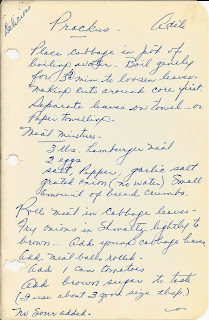 Delicious
Prackus - Adile
Place Cabbage in pot of
boiling water. Boil gently
for 3 min. to loosen leaves.
making cuts around core first.
Separate leaves on towel.. or
Paper towelling.
Meat Mixture -
3 lbs. hamburger meat
2 eggs
salt, Pepper, garlic salt
grated onion (no water) Small
amount of bread crumbs.
Roll meat in Cabbage leaves -
Fry onions in lightly to
brown.. Add young cabbage leaves
Add meat balls rolled.
Add 1 can tomatoes
Add brown sugar to taste
(I use about 3 good size tbsp)
No sour added.